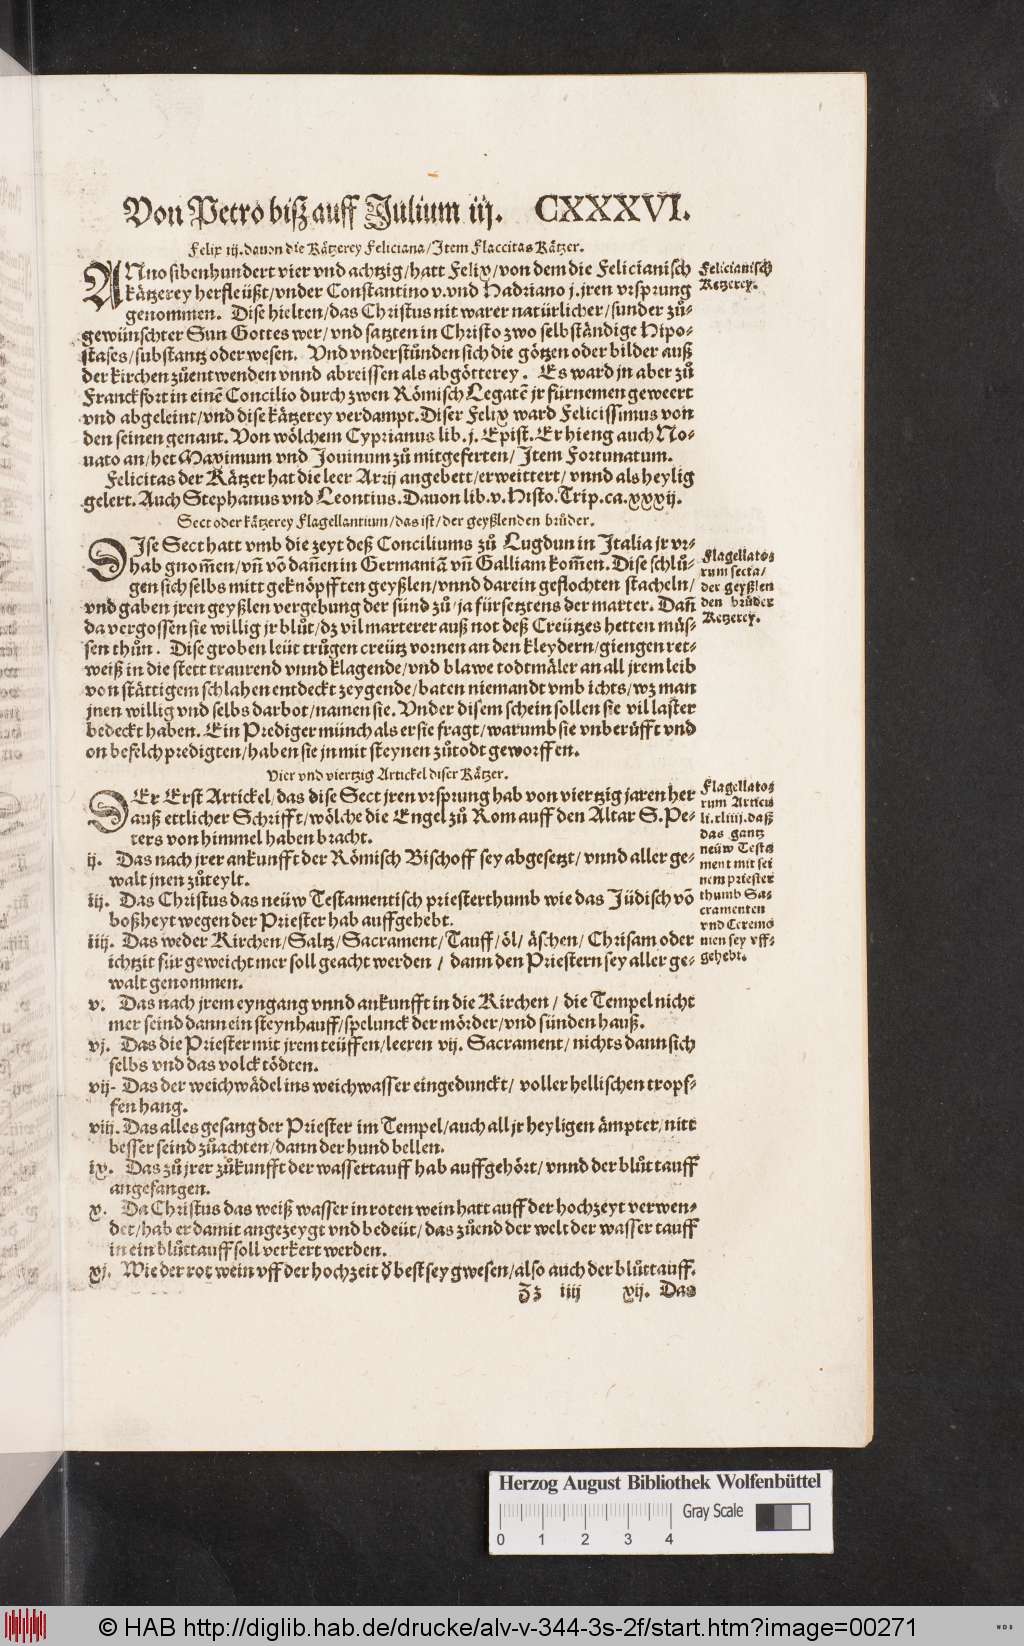 Von Petro biß auff Julium iij. CXXXVI.
Felix iij. dauon die Kätzerey Feliciana/Item Flaccitas Kätzer.
ANno sibenhundert vier vnd achtzig/hatt Felix/von dem die Felicianisch
kätzerey herfleüßt/vnder Constantino v. vnd Hadriano j. jren vrsprung
genommen. Dise hielten/das Christus nit warer natürlicher/sunder zů-
gewünschter Sun Gottes wer/vnd satzten in Christo zwo selbständige Hipo-
stases/substantz oder wesen. Vnd vnderstůnden sich die götzen oder bilder auß
der kirchen zůentwenden vnnd abreissen als abgötterey. Es ward jn aber zů
Franckfort in einē Concilio durch zwen Römisch Legatē jr fürnemen geweert
vnd abgeleint/vnd dise kätzerey verdampt. Diser Felix ward Felicissimus von
den seinen genant. Von wölchem Cyprianus lib. j. Epist. Er hieng auch No-
uato an/het Maximum vnd Jouinum zů mitgeferten/Item Fortunatum.
Felicitas der Kätzer hat die leer Arij angebett/erweittert/vnnd als heylig
gelert. Auch Stephanus vnd Leontius. Dauon lib. v. Histo. Trip. ca. xxxij.
Felicianisch
Ketzerey.
Sect oder kätzerey Flagellantium/das ist/der geyßlenden brůder.
DJse Sect hatt vmb die zeyt deß Conciliums zů Lugdun in Italia jr vr-
hab gnom̄en/vn̄ vō dan̄en in Germaniā vn̄ Galliam kom̄en. Dise schlů-
gen sich selbs mitt geknöpfften geyßlen/vnnd darein geflochten stacheln/
vnd gaben jren geyßlen vergebung der sünd zů/ja fürsetztens der marter. Dan̄
da vergossen sie willig jr blůt/dz vil marterer auß not deß Creützes hetten müs-
sen thůn. Dise groben leüt trůgen creütz vornen an den kleydern/giengen ret-
weiß in die stett traurend vnnd klagende/vnd blawe todtmäler an all jrem leib
von stättigem schlahen entdeckt zeygende/baten niemandt vmb ichts/wz man
jnen willig vnd selbs darbot/namen sie. Vnder disem schein sollen sie vil laster
bedeckt haben. Ein Prediger münch als er sie fragt/warumb sie vnberüfft vnd
on befelch predigten/haben sie jn mit steynen zůtodt geworffen.
Flagellato-
rum secta/
der geyßlen
den brůder
Ketzerey.
Vier vnd viertzig Artickel diser Kätzer.
DEr Erst Artickel/das dise Sect jren vrsprung hab von viertzig jaren her
auß ettlicher Schrifft/wölche die Engel zů Rom auff den Altar S. Pe-
ters von himmel haben bracht.
ij. Das nach jrer ankunfft der Römisch Bischoff sey abgesetzt/vnnd aller ge-
walt jnen zůteylt.
iij. Das Christus das neüw Testamentisch priesterthumb wie das Jüdisch vō
boßheyt wegen der Priester hab auffgehebt.
iiij. Das weder Kirchen/Saltz/Sacrament/Tauff/öl/äschen/Chrisam oder
ichtzit für geweicht mer soll geacht werden/dann den Priestern sey aller ge-
walt genommen.
v. Das nach jrem eyngang vnnd ankunfft in die Kirchen/die Tempel nicht
mer seind dann ein steynhauff/spelunck der mörder/vnd sünden hauß.
vj. Das die Priester mit jrem teüffen/leeren vij. Sacrament/nichts dann sich
selbs vnd das volck tödten.
vij. Das der weichwädel ins weichwasser eingedunckt/voller hellischen tropf-
fen hang.
viij. Das alles gesang der Priester im Tempel/auch all jr heyligen ämpter/nitt
besser seind zůachten/dann der hund bellen.
ix. Das zů jrer zůkunfft der wassertauff hab auffgehört/vnnd der blůttauff
angefangen.
x. Da Christus das weiß wasser in roten wein hatt auff der hochzeyt verwen-
det/hab er damit angezeygt vnd bedeüt/das zůend der welt der wassertauff
in ein blůttauff soll verkert werden.
xj. Wie der rot wein vff der hochzeit d' best sey gwesen/also auch der blůttauff.
Flagellato-
rum Articu
li. xliiij. daß
das gantz
neüw Testa
ment mit sei
nem priester
thumb Sa-
cramenten
vnd Ceremo
nien sey vff-
gehebt.
Zz iiij xij. Das
Herzog August Bibliothek Wolfenbüttel
Gray Scale
0 1 2 3 4
© HAB http://diglib.hab.de/drucke/alv-v-344-3s-2f/start.htm?image=00271